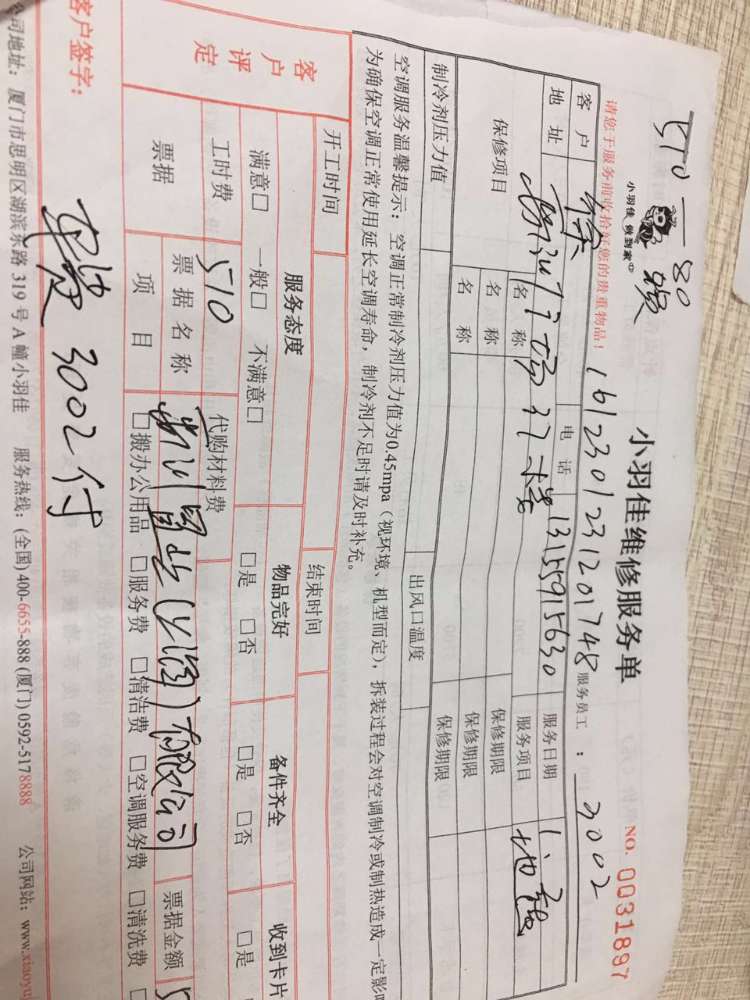 510—80
小羽佳 做到家
小羽佳维修服务单
NO. 0031897
请您于服务前收拾好您的贵重物品!
1612301231201748
服务员工 : 3002
客户
电话 13155915630
服务日期
地址
37
服务项目
保修项目
名称
保修期限
名称
保修期限
名称
保修期限
制冷剂压力值
出风口温度
空调服务温馨提示：空调正常制冷剂压力值为0.45mpa（视环境、机型而定），拆装过程会对空调制冷或制热造成一定影
为确保空调正常使用延长空调寿命，制冷剂不足时请及时补充。
开工时间
结束时间
客户评定
服务态度
物品完好
备件齐全
收到卡片
满意□ 一般□ 不满意□
□是 □否
□是 □否
□是
工时费 510
代购材料费
票据
票据名称
有限公司
票据金额 5
项目
□搬办公用品 □服务费 □清洁费 □空调服务费 □清洗费
客户签字：
3002付
公司地址：厦门市思明区湖滨东路 319 号 A 幢小羽佳 服务热线：(全国) 400-6655-888 (厦门) 0592-5178888 公司网站：www.xiaoyu